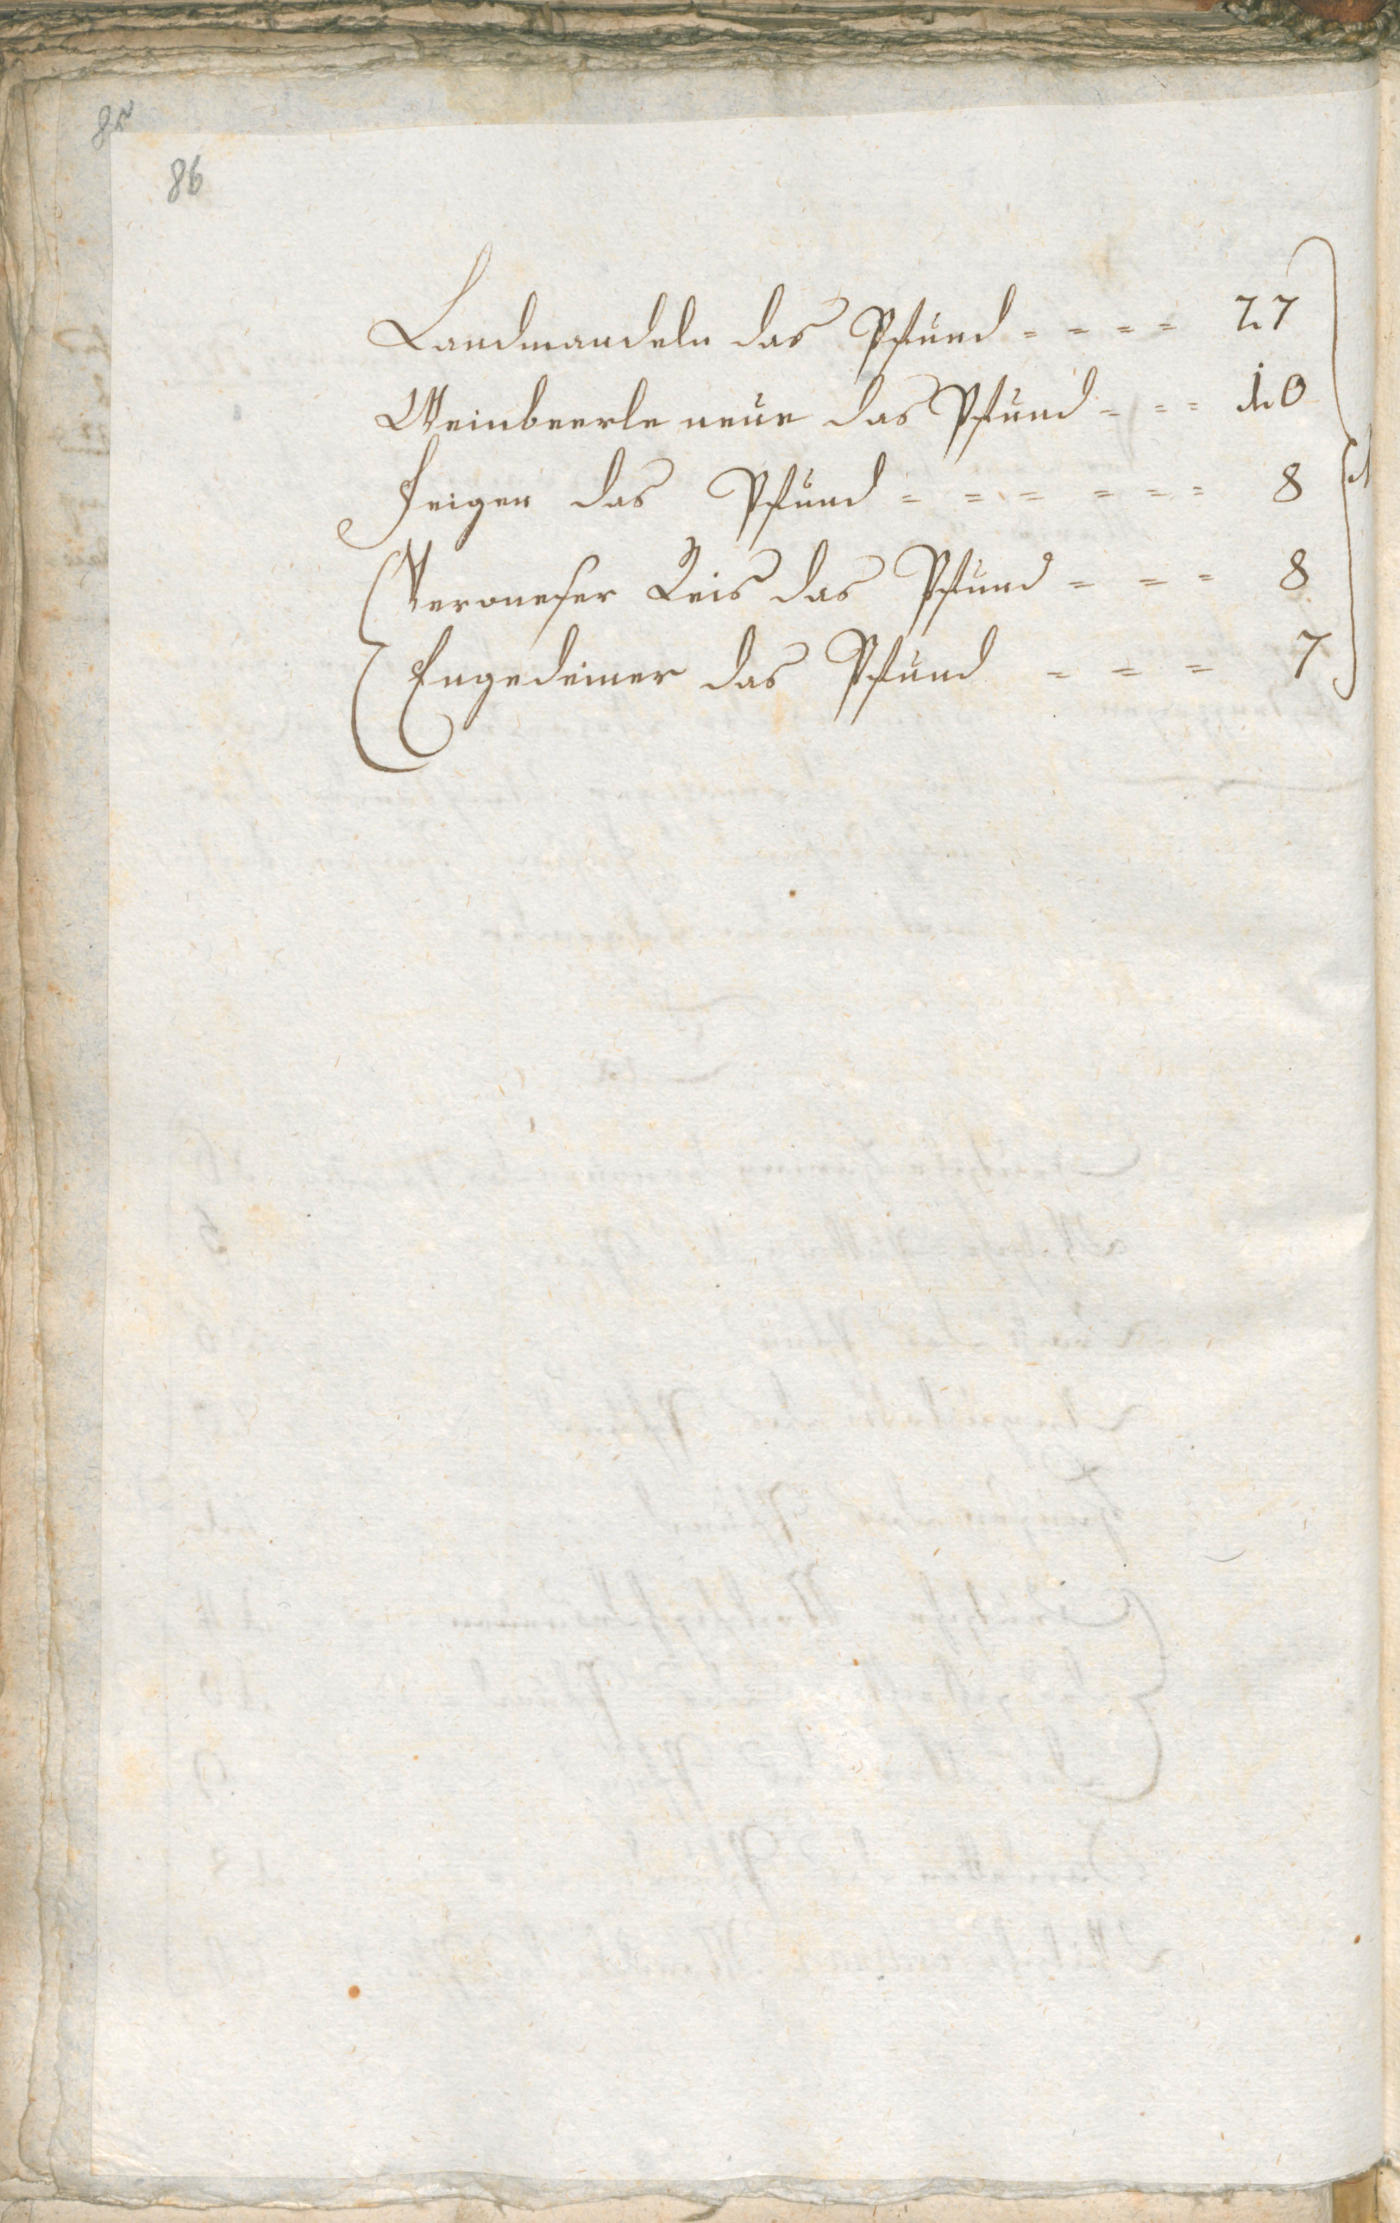 86
Landmandeln das Pfund = = = = 27
Weinbeerle neue das Pfund = = = 10
Feigen das Pfund = = = = = = 8
Veroneser Reis das Pfund = = = 8
Engedeiner das Pfund = = = 7